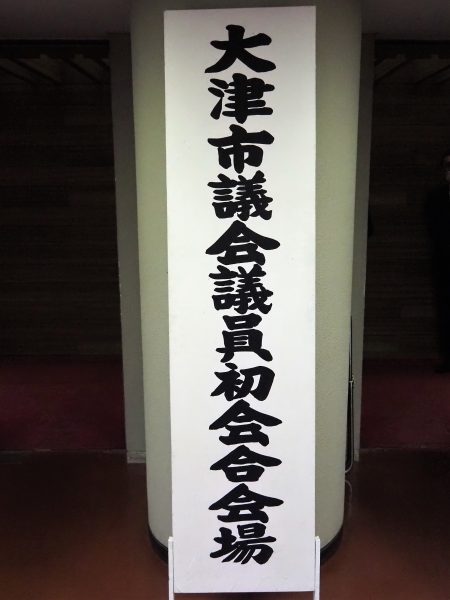 大津市議会議員初会合会場